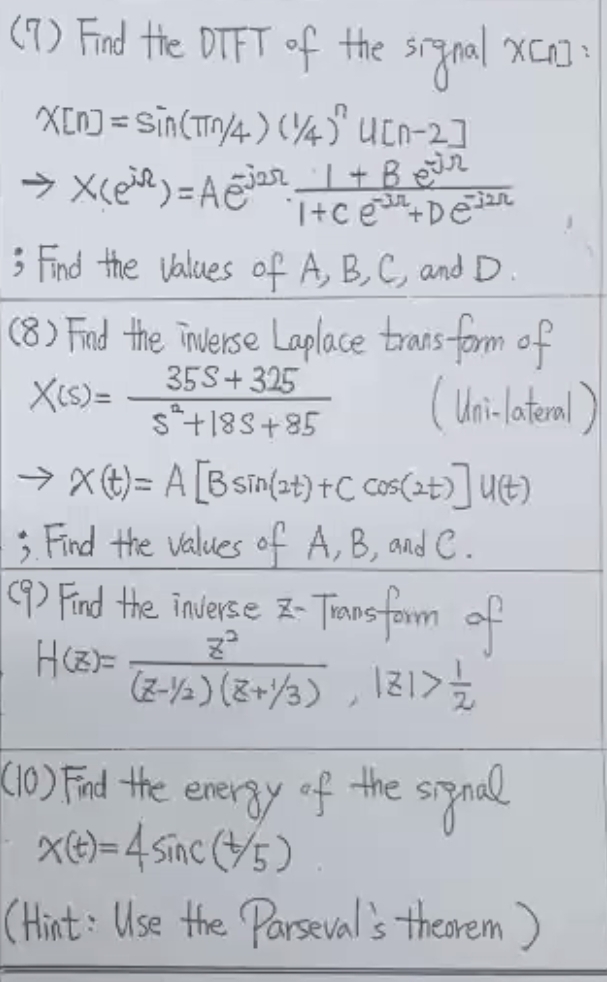 (7) Find the DTFT of the signal x[n]:
x[n] = sin(πn/4) (1/4)^n u[n-2]
→ X(e^jΩ) = A e^-j2Ω · (1 + B e^-jΩ) / (1 + C e^-jΩ + D e^-j2Ω)
; Find the values of A, B, C, and D.
(8) Find the inverse Laplace transform of
X(s) = (35s + 325) / (s^2 + 18s + 85) (Uni-lateral)
→ x(t) = A [B sin(2t) + C cos(2t)] u(t)
; Find the values of A, B, and C.
(9) Find the inverse z-Transform of
H(z) = z^2 / ((z-1/2)(z+1/3)) , |z| > 1/2
(10) Find the energy of the signal
x(t) = 4 sinc(t/5)
(Hint: Use the Parseval's theorem)